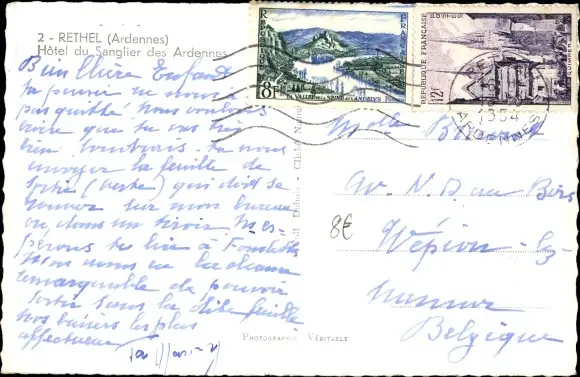 2 - RETHEL (Ardennes)
Hôtel du Sanglier des Ardennes
Bien Chère Enfant
ta pensée ne nous a
pas quitté. Nous voulons
croire que tu vas très
bien toujours. tu nous
envoyer la feuille de
Sortie (verte) qui doit se
trouver sur mon bureau
ou dans un tiroir. Nes-
pérons te lire à
Nous avons eu la chance
remarquable de pouvoir
Sortir sans la dite feuille
Nos baisers les plus
affectueux
ta
REPUBLIQUE FRANÇAISE
8F
LA VALLEE DE LA SEINE AUX ANDELYS
REPUBLIQUE FRANÇAISE
12F
QUIMPER
1954
ARDENNES
Mlle
Av. N. D au Bois
8€
Wépion-lez-
Namur
Belgique
PHOTOGRAPHIE VÉRITABLE